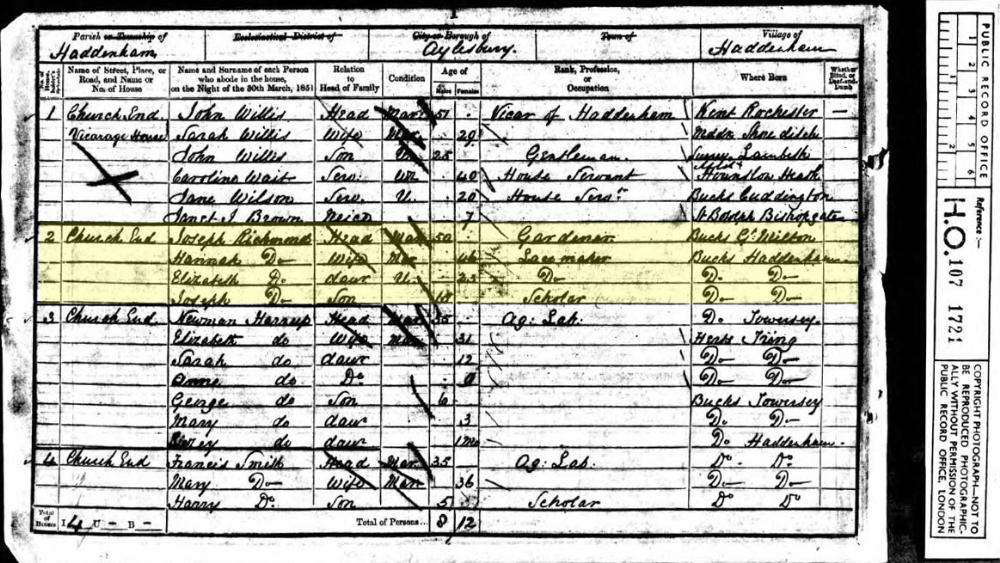 1
Parish or Township of Ecclesiastical District of City or Borough of Town of Village of
Haddenham Aylesbury Haddenham
Name of Street, Place, or Road, and Name or No. of House Name and Surname of each Person who abode in the house, on the Night of the 30th March, 1851 Relation to Head of Family Condition Age of Males Females Rank, Profession, or Occupation Where Born Whether Blind, or Deaf-and-Dumb
1 Church End. John Willis Head Mar 51 Vicar of Haddenham Kent Rochester
Vicarage House Sarah Willis Wife Mar 29 Middx Shoreditch
John Willis Son Un 25 Gentleman. Surrey Lambeth
Caroline Wait Serv. 40 House Servant Hounslow Heath
Jane Wilson Serv. U. 20 House Serv.t Bucks Cuddington
Janet J Brown Neice 7 St Botolph Bishopgate
2 Church End Joseph Richmond Head Mar 50 Gardener Bucks Gt Milton
Hannah Do Wife Mar 46 Lacemaker Bucks Haddenham
Elizabeth Do daur U. 23 Do Do Do
Joseph Do Son 10 Scholar Do Do
3 Church End. Newman Harrup Head Mar 35 Ag: Lab. Do. Towersey.
Elizabeth do Wife Mar 31 Herts Tring
Sarah do daur 12 Do Do
Anne do Do Do Do
George do Son 6 Bucks Towersey
Mary do daur 3 Do. Do
do daur 1 mo Do Haddenham.
4 Church End Francis Smith Head Mar. 35 Ag: Lab. Do. Do.
Mary Do Wife Mar 36 Do Do
Harry Do. Son 5 Scholar Do Do
Total of Houses I 4 U - B - Total of Persons... 8 12
PUBLIC RECORD OFFICE
1 2 3 4 5 6
Reference :-
H.O. 107 1721
COPYRIGHT PHOTOGRAPH—NOT TO BE REPRODUCED PHOTOGRAPHIC-
ALLY WITHOUT PERMISSION OF THE
PUBLIC RECORD OFFICE, LONDON